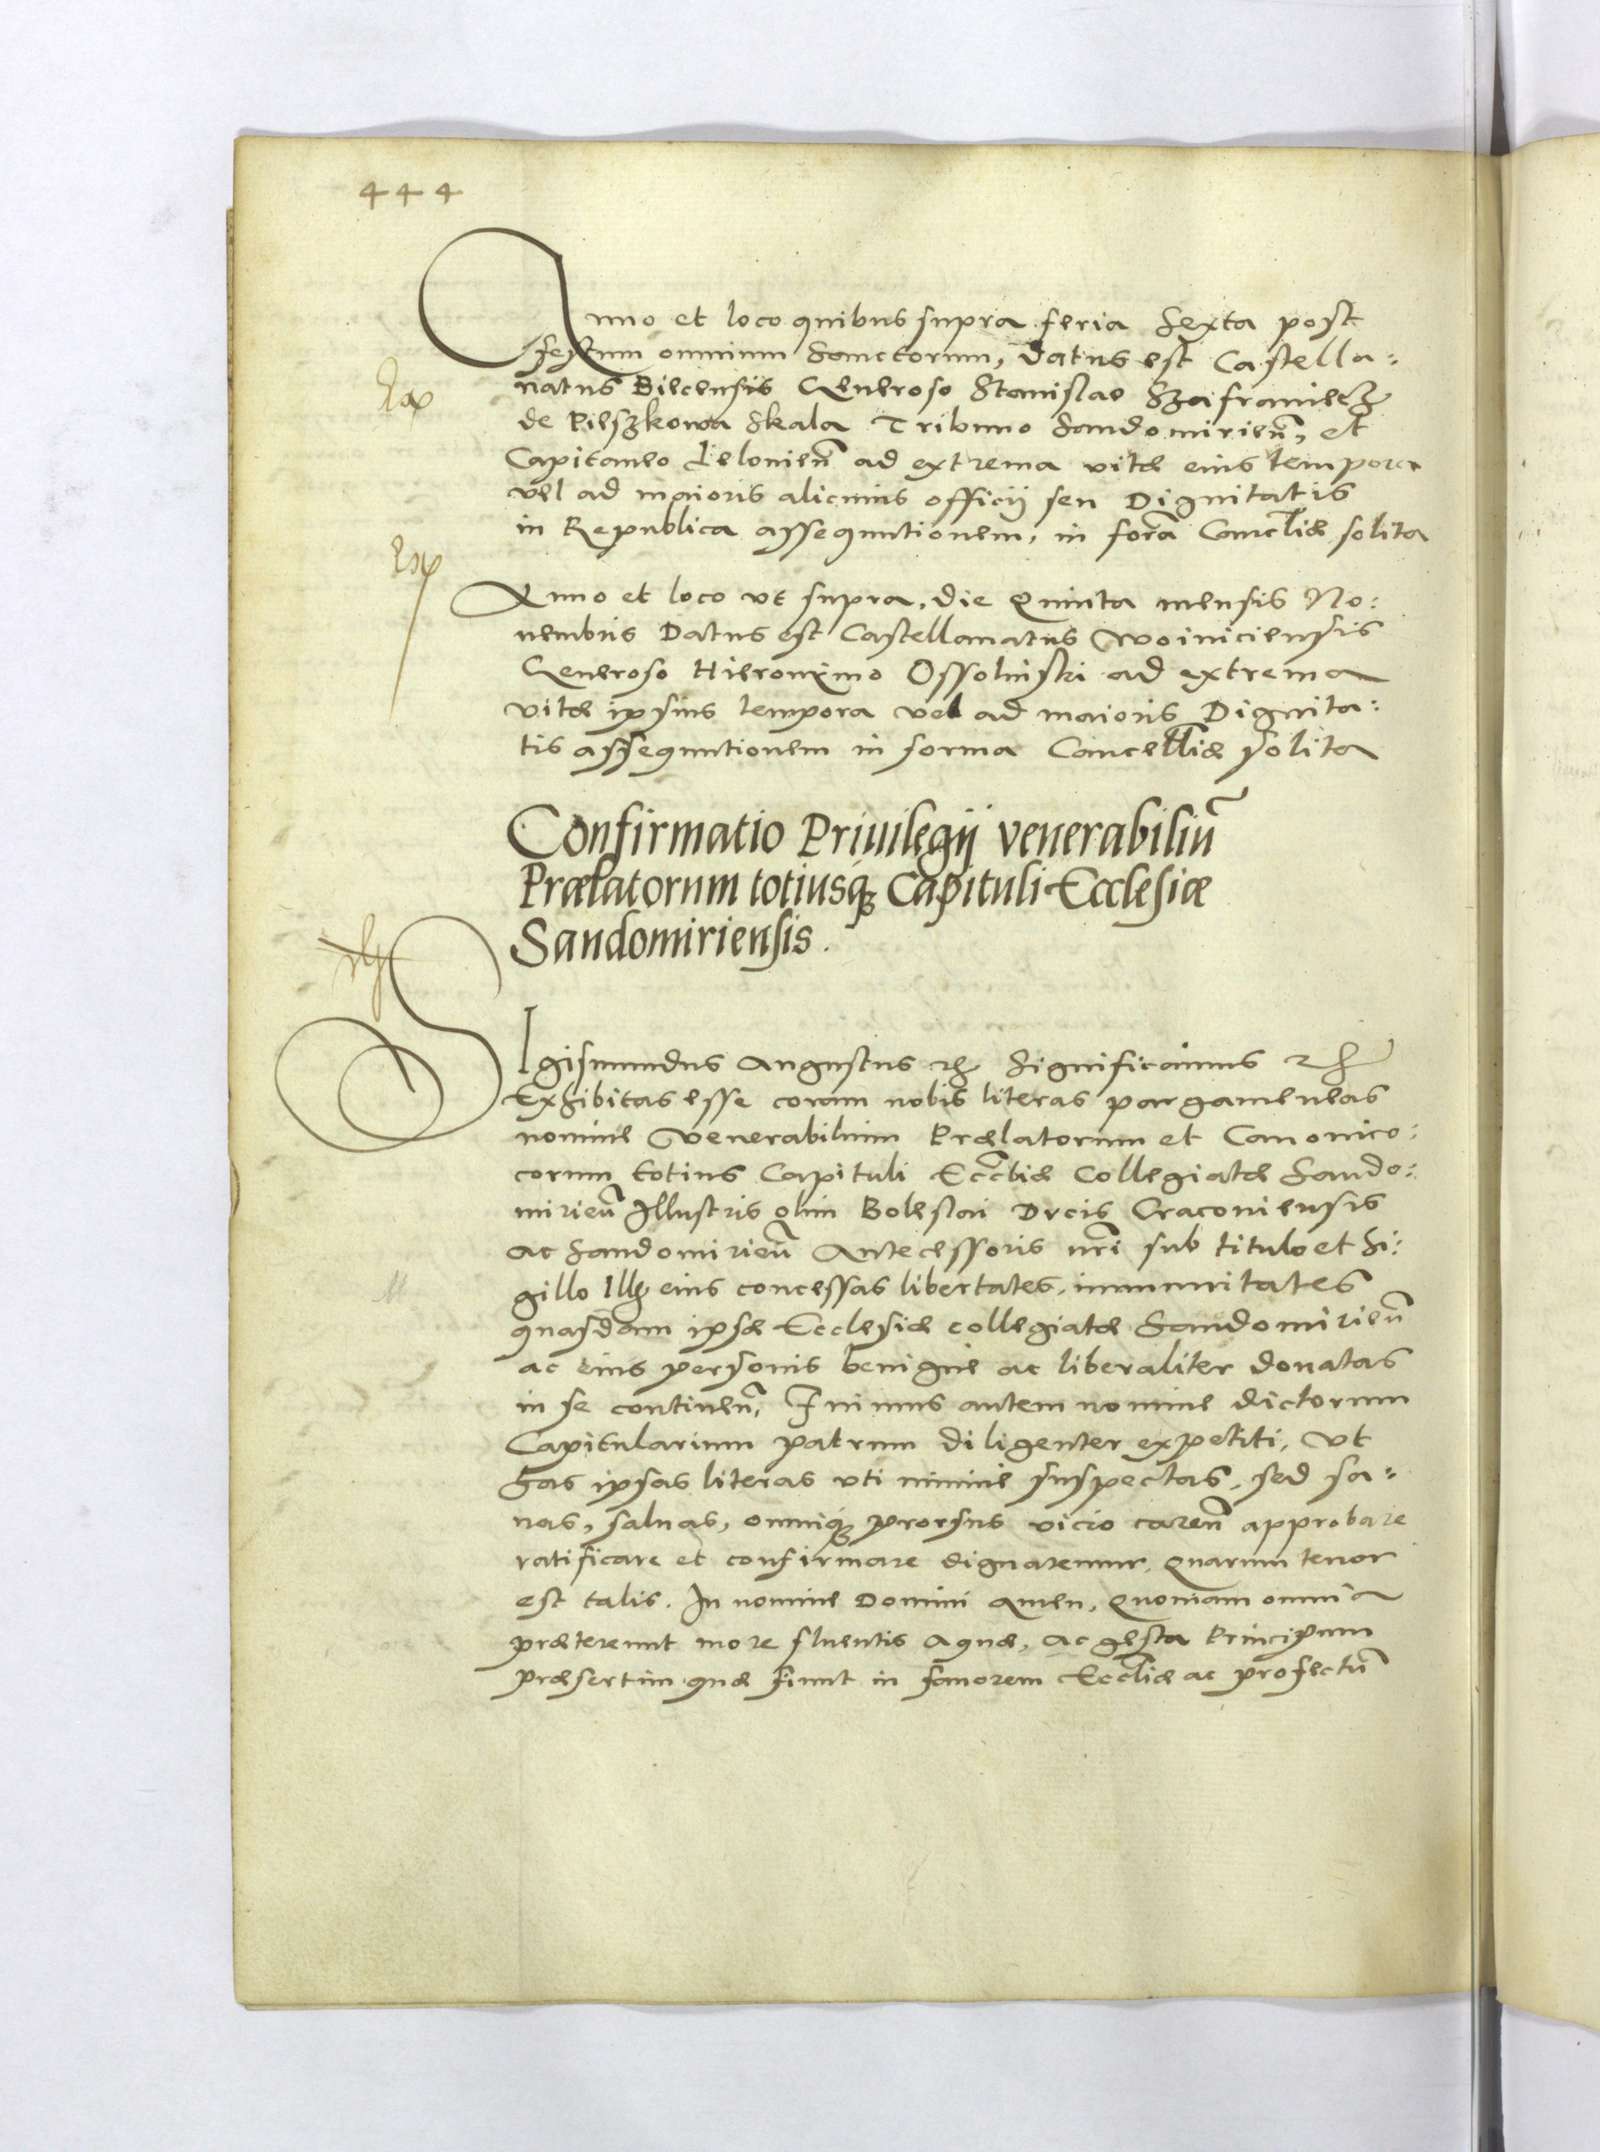 444
Anno et loco quibus supra feria Sexta post
festum omnium Sanctorum, Datus est Castella:
natus Biecensis Generoso Stanislao Szafraniecz
de Pieszkowa Skala Tribuno Sandomirien̄, et
Capitaneo Lelovien̄ ad extrema vitæ eius tempora
vel ad maioris alicuius officij seu Dignitatis
in Republica assequutionem, in forā Cancłiæ solita
Anno et loco vt supra, die Quinta mensis No:
uembris Datus est Castellanatus Woiniciensis
Generoso Hieronimo Ossolinski ad extrema
vitæ ipsius tempora vel ad maioris Dignita:
tis assequutionem in forma Cancełłiæ solita
Confirmatio Priuilegij venerabiliū
Prælatorum totiusq; Capituli Ecclesiæ
Sandomiriensis.
SIgismundus Augustus Significamus
Exhibitas esse coram nobis literas pargameneas
nomine Venerabilium Prælatorum et Canonico:
corum totius Capituli Eccłiæ Collegiatæ Sando:
mirien̄ Illustris olim Boleslai Ducis Cracouiensis
ac Sandomirien̄ Antecessoris nr̄i sub titulo et Si:
gillo Ill eius concessas libertates, immunitates
quasdam ipsæ Ecclesiæ collegiatæ Sandomirien̄
ac eius personis benigne ac liberaliter donatas
in se continen̄, Fuimus autem nomine dictorum
Capitularium patrum diligenter expetiti, Vt
has ipsas literas vti minime suspectas, sed sa:
nas, saluas, omniq; prorsus vicio caren̄ approbare
ratificare et confirmare dignaremur, Quarum tenor
est talis. In nomine Domini Amen, Quoniam omnia
prætereunt more fluentis Aquæ, Ac gesta Principum
præsertim quæ fiunt in fauorem Eccłiæ ac profectū